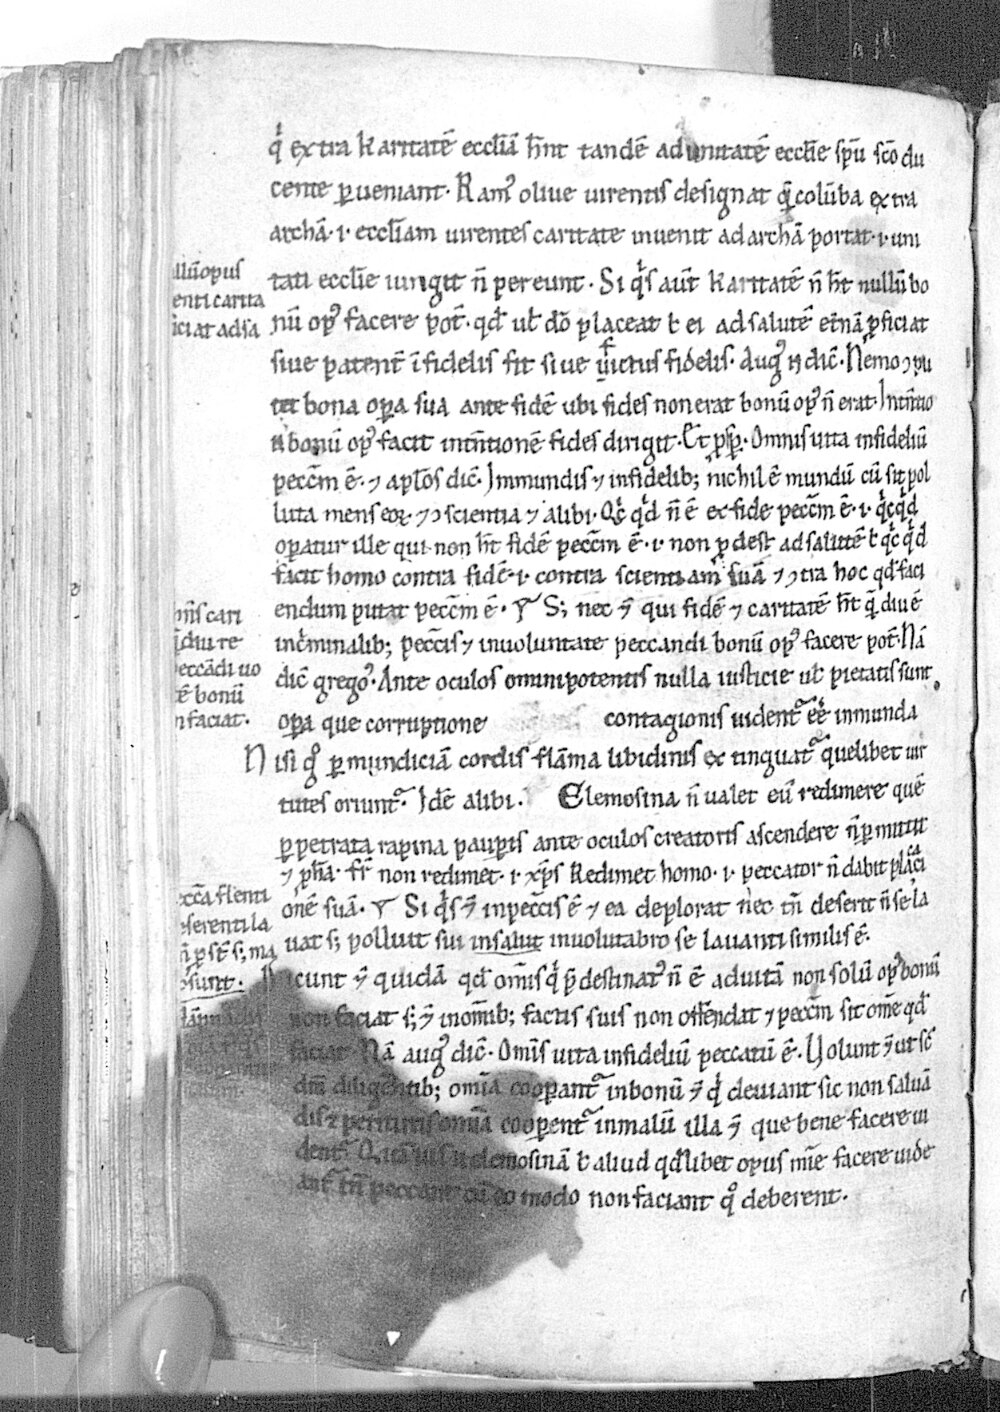 qͥ extra karitatē eccliā hn̄t tandē ad unitatē ecclie sp̄u sc̄o du
cente ꝑveniant. Ramꝰ olive virentis designat q̄ colūba extra
archā .i. eccliam virentes caritate invenit ad archā portat .i. uni
tati ecclie iungit n̄ pereunt. Si qͥs aut̄ karitatē n̄ ht̄ nullū bo
nū opꝰ facere pot̄. qd̓ ul̓ dō placeat ł ei ad salutē et̓nā ꝓficiat
sive patent̄ īfidelis sit sive fictus fidelis. Augꝰ dic̄. Nemo ↄpu
tet bona oꝑa sua ante fidē ubi fides non erat bonū opꝰ n̄ erat. Intn̄tio
bonū opꝰ facit intn̄tionē fides dirigit. Et psꝑ. Omnis vita infideliū
pecc̄m ē. ⁊ apl̄os dic̄. Inmundis ⁊ infidelib; nichil ē mundū cū sit pol
luta mens eoꝝ ⁊ ↄscientia ⁊ alibi. Qͥcqͥd n̄ ē ex fide pecc̄m ē .i. qͥcqͥd
oꝑatur ille qui non ht̄ fidē pecc̄m ē .i. non ꝓdest ad salutē ł qͥcqͥd
facit homo contra fidē .i. contra scientiam suā ⁊ ↄtra hoc qd̓ faci
endum putat pecc̄m ē. S; nec qui fidē ⁊ caritatē ht̄ q̄diu ē
in c̓minalib; pecc̄is ⁊ in voluntate peccandi bonū opꝰ facere pot̄. Nā
dic̄ gregoꝰ. Ante oculos omnipotentis nulla iusticie ul̓ pietatis sunt
oꝑa que corruptione contagionis vident᷑ ēē inmunda
Nisi gͦ ꝑ mundiciā cordis flāma libidinis extinguat᷑ quelibet vir
tutes oriunt᷑. Idē alibi. Elemosina n̄ valet eū redimere quē
ꝑpetrata rapina pauꝑis ante oculos creatoris ascendere n̄ ꝑmittit
⁊ ꝓph̄a. fr̄ non redimet .i. xp̄s Redimet homo .i. peccator n̄ dabit placa
onē suā. Si qͥs in pecc̄is ē ⁊ ea deplorat nec tn̄ deserit n̄ se la
vat s; polluit sui in salut involutabro se lavanti similis ē.
Dicunt quidā qd̓ om̄is qͥ p̄destinatꝰ n̄ ē ad vitā non solū opꝰ bonū
non faciat s; in om̄ib; factis suis non offendat ⁊ pecc̄m sit om̄e qd̓
faciat. Nā augꝰ dic̄. Om̄is vita infideliū peccatū ē. Volunt ut sic̄
dm̄ diligentib; om̄ia cooꝑant᷑ in bonū ⁊ qͥ deviant sic non salvā
dis ⁊ perituris om̄ia cooꝑent᷑ in malū illa que bene facere vi
dent᷑. elemosinā ł aliud qd̓libet opus mīe facere vide
ant᷑ tn̄ peccant cū eo modo non faciant qͦ deberent.
llū opus
enti carita
iciat ad sa
cari
diu re
peccādi vo
tē bonū
n faciat.
ecc̄a flenti
eserenti la
ꝓst̄ s; ma
sunt.